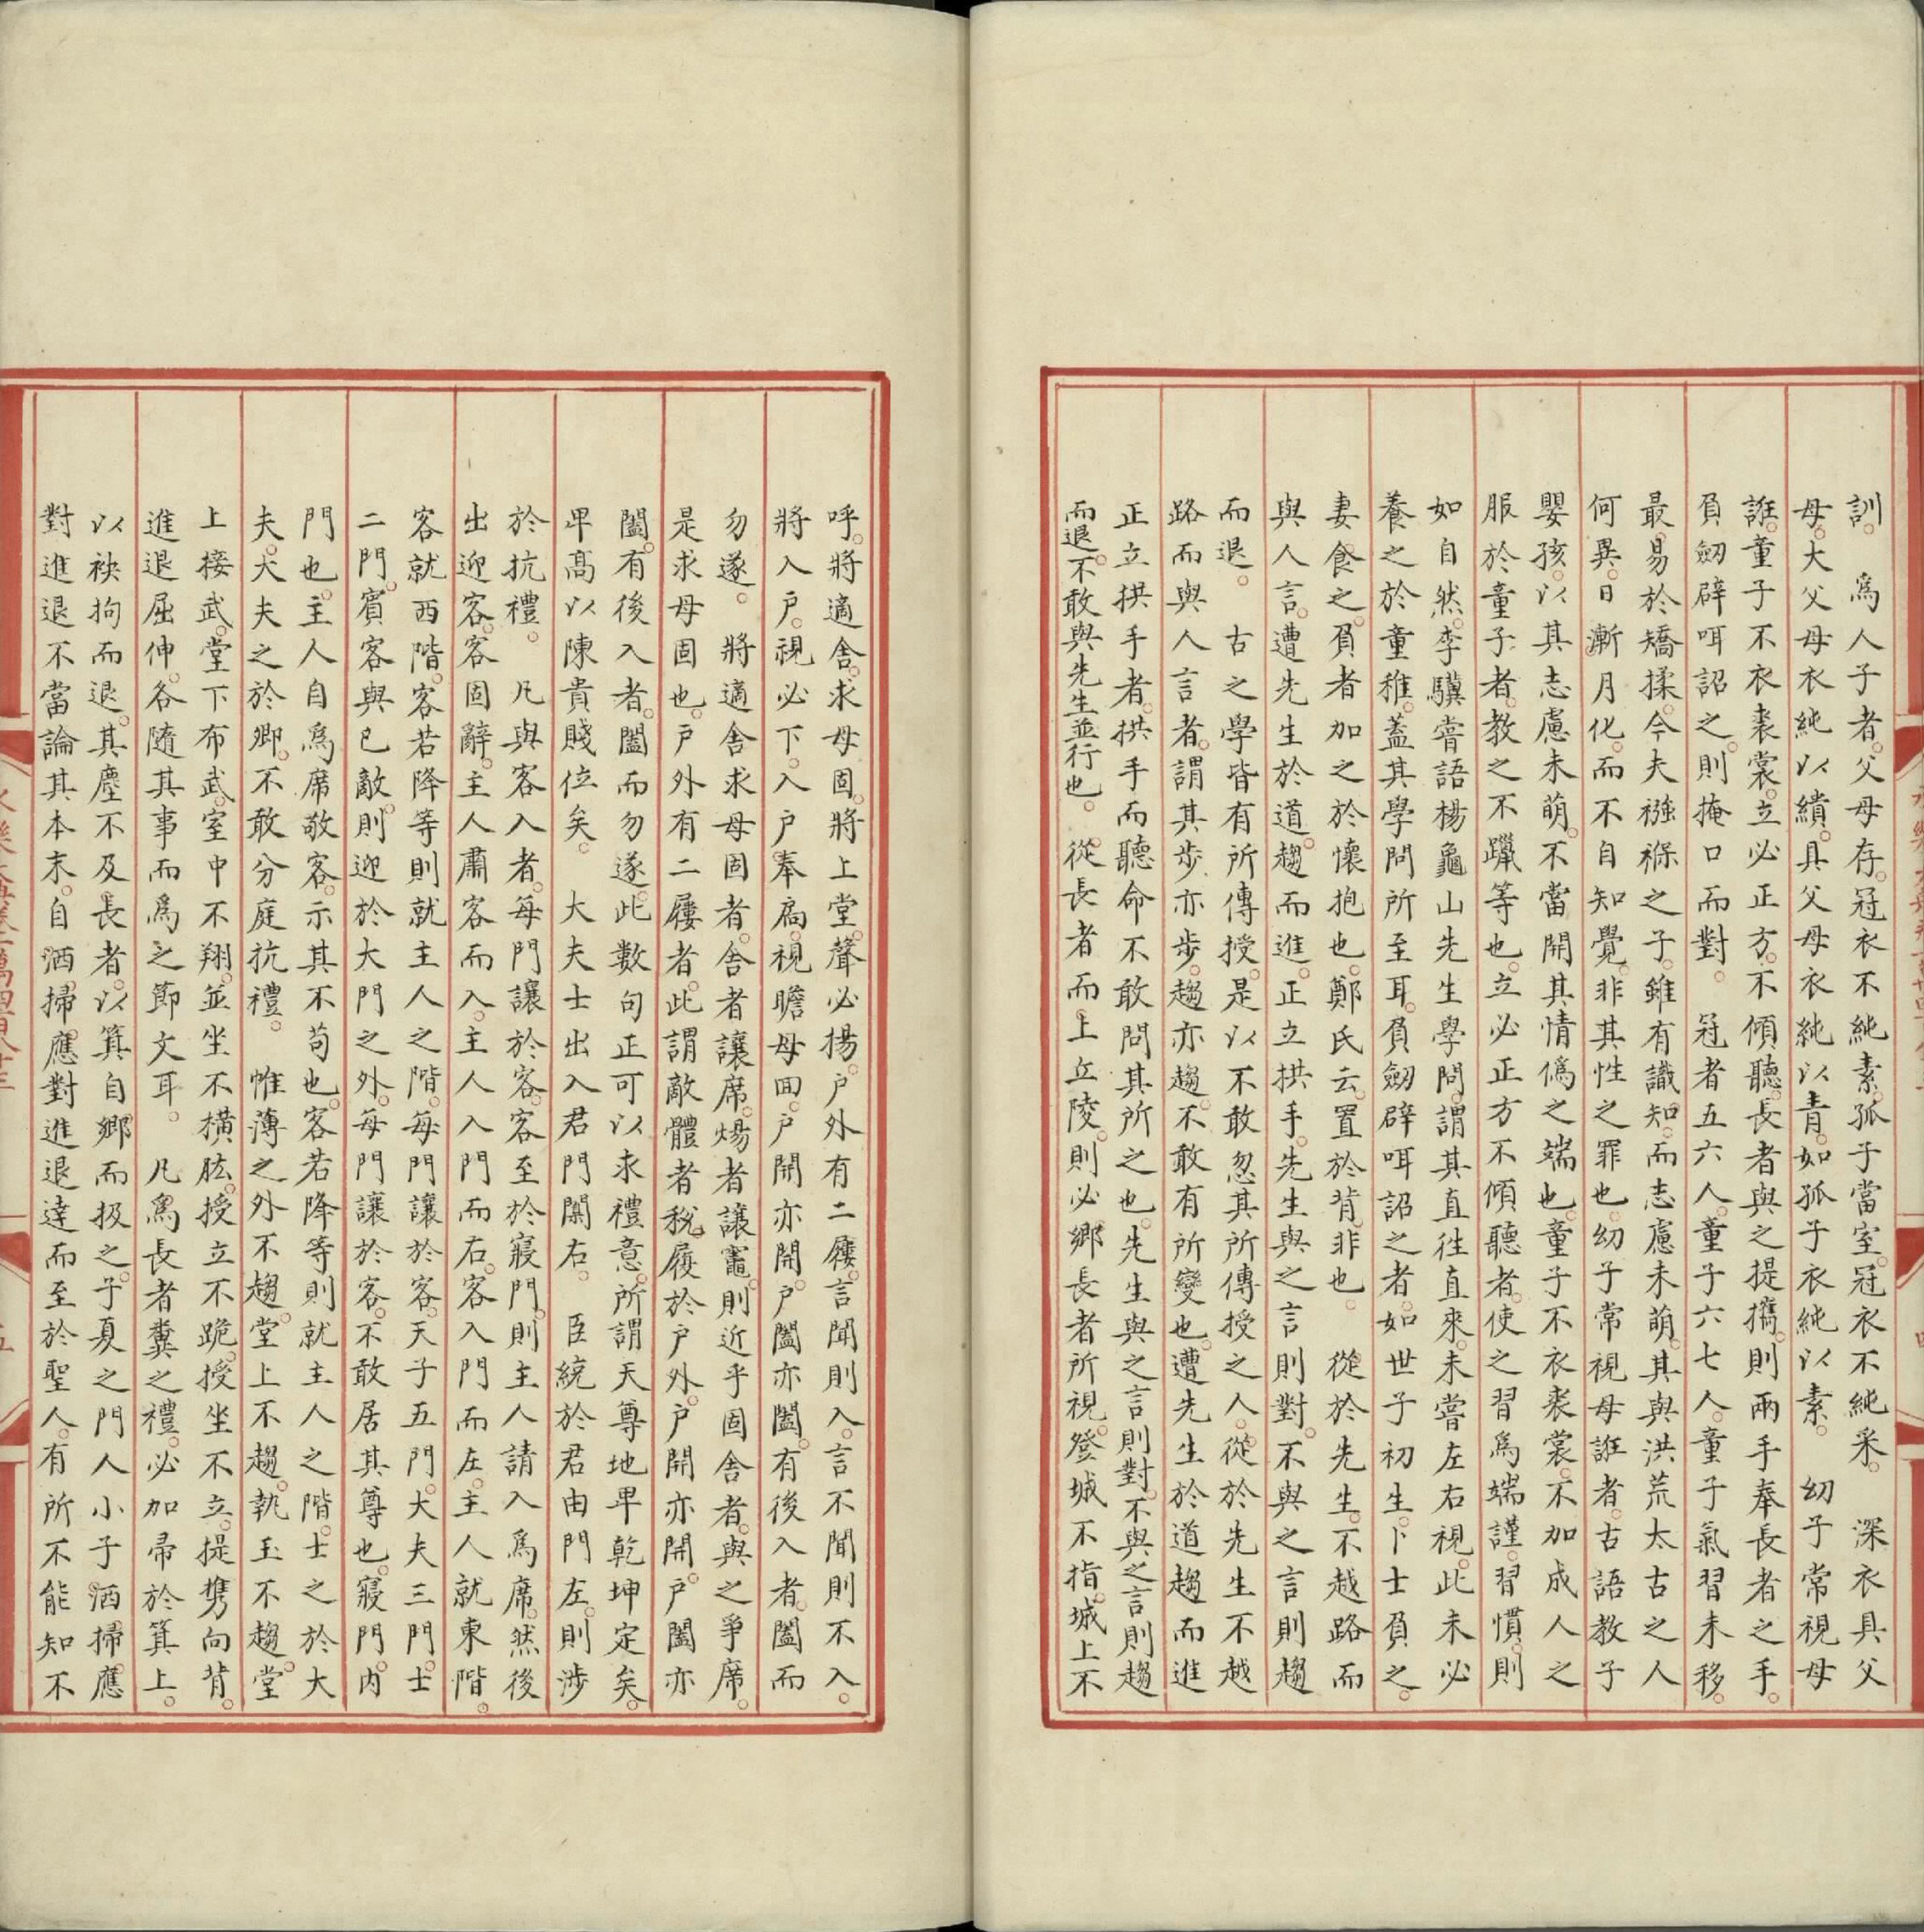 訓。　爲人子者。父母存。冠衣不純素。孤子當室。冠衣不純采。　深衣具父
母。大父母衣純以繢。具父母衣純以青。如孤子衣純以素。　幼子常視母
誑。童子不衣裘裳。立必正方。不傾聽。長者與之提攜。則兩手奉長者之手。
負劒辟咡詔之。則掩口而對。　冠者五六人。童子六七人。童子氣習未移。
最易於矯揉。今夫襁褓之子。雖有識知。而志慮未萌。其與洪荒太古之人
何異。日漸月化。而不自知覺。非其性之罪也。幼子常視母誑者。古語教子
嬰孩。以其志慮未萌。不當開其情僞之端也。童子不衣裘裳。不加成人之
服於童子者。教之不躐等也。立必正方不傾聽者。使之習爲端謹。習慣。則
如自然。李驥嘗語楊龜山先生學問。謂其直徃直來。未嘗左右視。此未必
養之於童稚。蓋其學問所至耳。負劒辟咡詔之者。如世子初生。卜士負之。
妻食之。負者加之於懷抱也。鄭氏云。置於背。非也。　從於先生。不越路而
與人言。遭先生於道。趨而進。正立拱手。先生與之言則對。不與之言則趨
而退。　古之學皆有所傳授。是以不敢忽其所傳授之人。從於先生不越
路而與人言者。謂其步亦步。趨亦趨。不敢有所變也。遭先生於道趨而進
正立拱手者。拱手而聽命不敢問其所之也。先生與之言則對。不與之言則趨
而退。不敢與先生並行也。　從長者而上立陵。則必鄉長者所視。登城不指。城上不
呼。將適舍。求母固。將上堂。聲必揚。户外有二屨。言聞則入。言不聞則不入。
將入户。視必下。入户奉扃。視瞻母囬。户開亦開。户闔亦闔。有後入者。闔而
勿遂。　將適舍求母固者。舍者讓席。煬者讓竈。則近乎固舍者。與之爭席。
是求母固也。户外有二屨者。此謂敵體者稅屨於户外。户開亦開。户闔亦
闔。有後入者。闔而勿遂。此數句正可以求禮意。所謂天尊地甲乾坤定矣。
甲髙以陳貴賤位矣。　大夫士出入君門闑右。　臣統於君由門左。則涉
於抗禮。　凡與客入者。每門讓於客。客至於寢門。則主人請入爲席。然後
出迎客。客固辭。主人肅客而入。主人入門而右。客入門而左。主人就東階。
客就西階。客若降等則就主人之階。每門讓於客。天子五門。大夫三門。士
二門。賓客與已敵。則迎於大門之外。每門讓於客。不敢居其尊也。寢門。内
門也。主人自爲席敬客。示其不苟也。客若降等則就主人之階。士之於大
夫。大夫之於卿。不敢分庭抗禮。　帷薄之外不趨。堂上不趨。執玉不趨。堂
上接武。堂下布武。室中不翔。並坐不横肱。授立不跪。授坐不立。提携向背。
進退屈伸。各隨其事而爲之節文耳。　凡爲長者糞之禮。必加帚於箕上。
以袂拘而退。其塵不及長者。以箕自鄉而扱之。子夏之門人小子洒掃應
對進退不當論其本末。自洒掃應對進退。達而至於聖人。有所不能知不